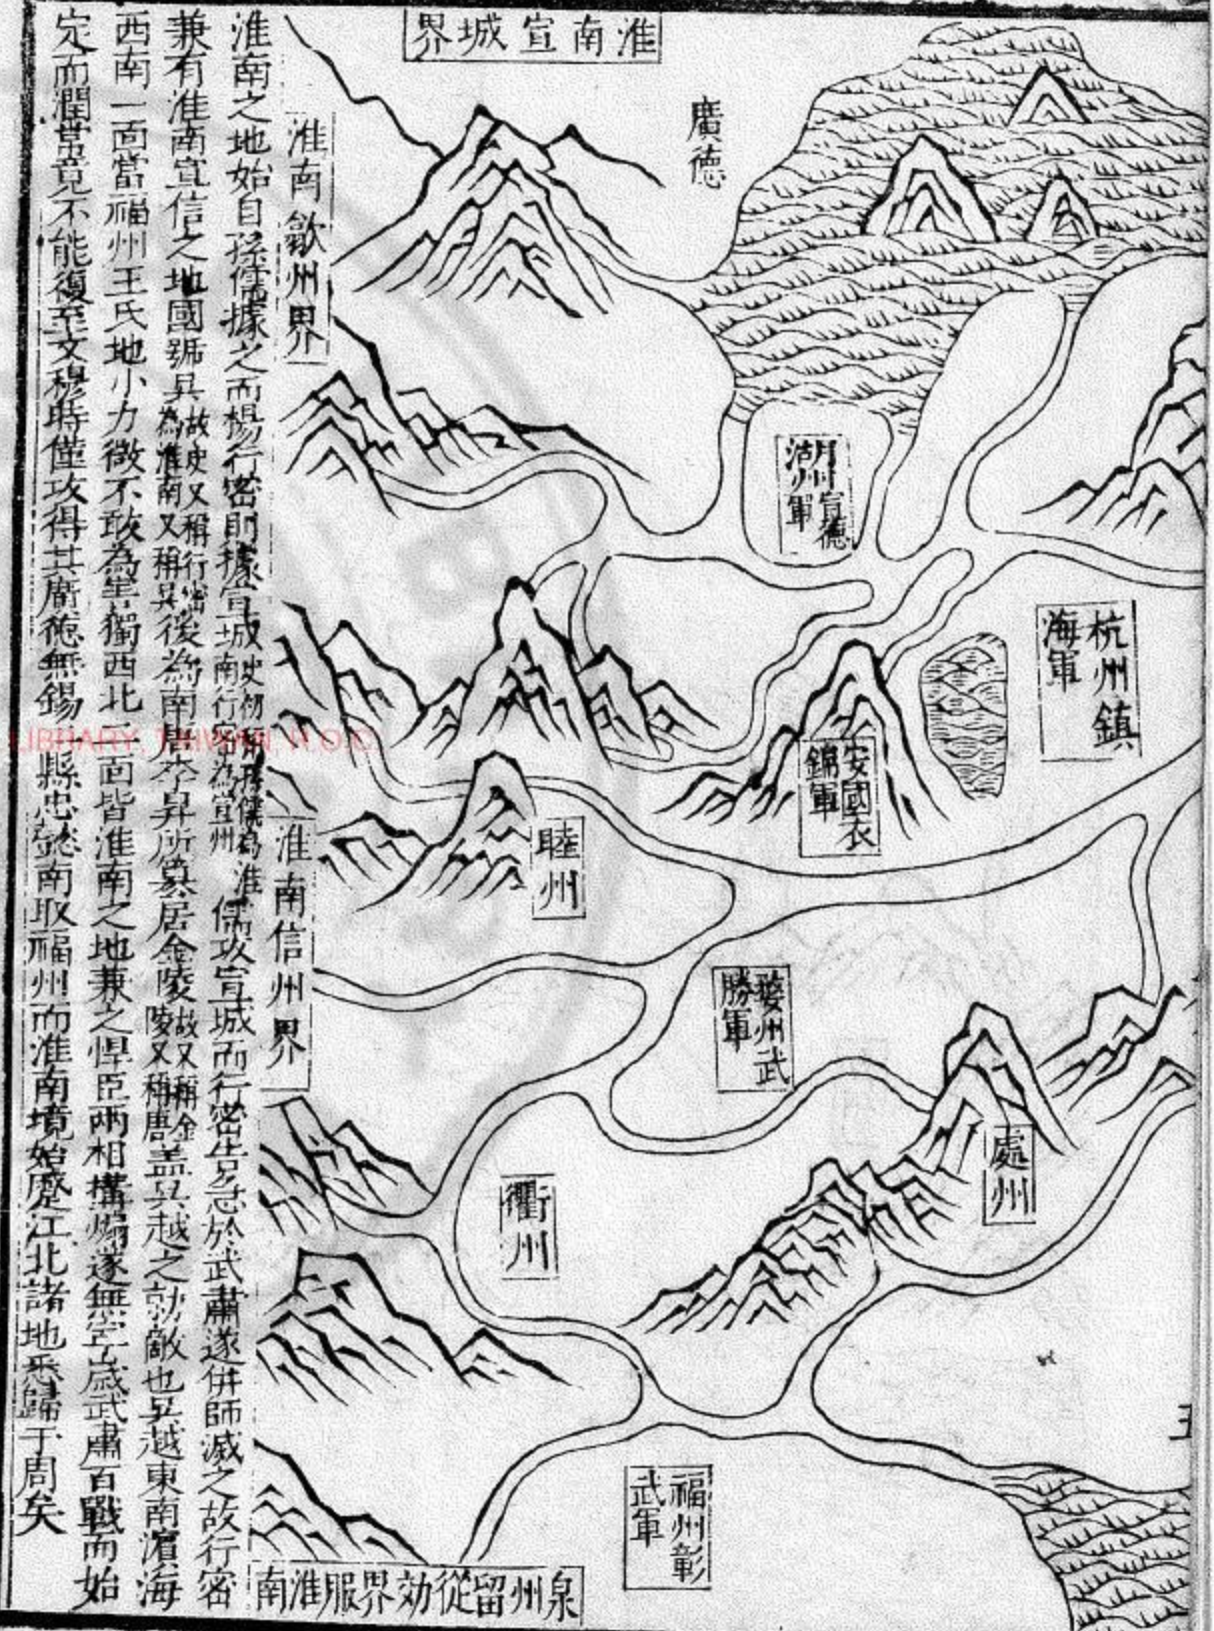 淮南宣城界
廣德
湖州宣德
軍
杭州鎮
海軍
安國衣
錦軍
睦州
婺州武
勝軍
處州
衢州
福州彰
武軍
王
淮南歙州界
淮南信州界
泉州留從効界服淮南
淮南之地始自孫儒據之而楊行密則據宣城史稱孫儒為淮南行密為宣州儒攻宣城而行密告急於武肅遂併師滅之故行密
兼有淮南宣信之地國號吳故史又稱行密為淮南又稱吳後為南唐李昪所篡居金陵故又稱金陵又稱唐盖吳越之勍敵也吳越東南濱海
西南一面當福州王氏地小力微不敢為獨西北一面皆淮南之地兼之悍臣兩相搆煽遂無寧歲武肅百戰而始
定而潤常竟不能復至文穆時僅攻得其廣德無錫縣忠懿南取福州而淮南境始蹙江北諸地悉歸于周矣
LIBRARY, TAIWAN, R.O.C